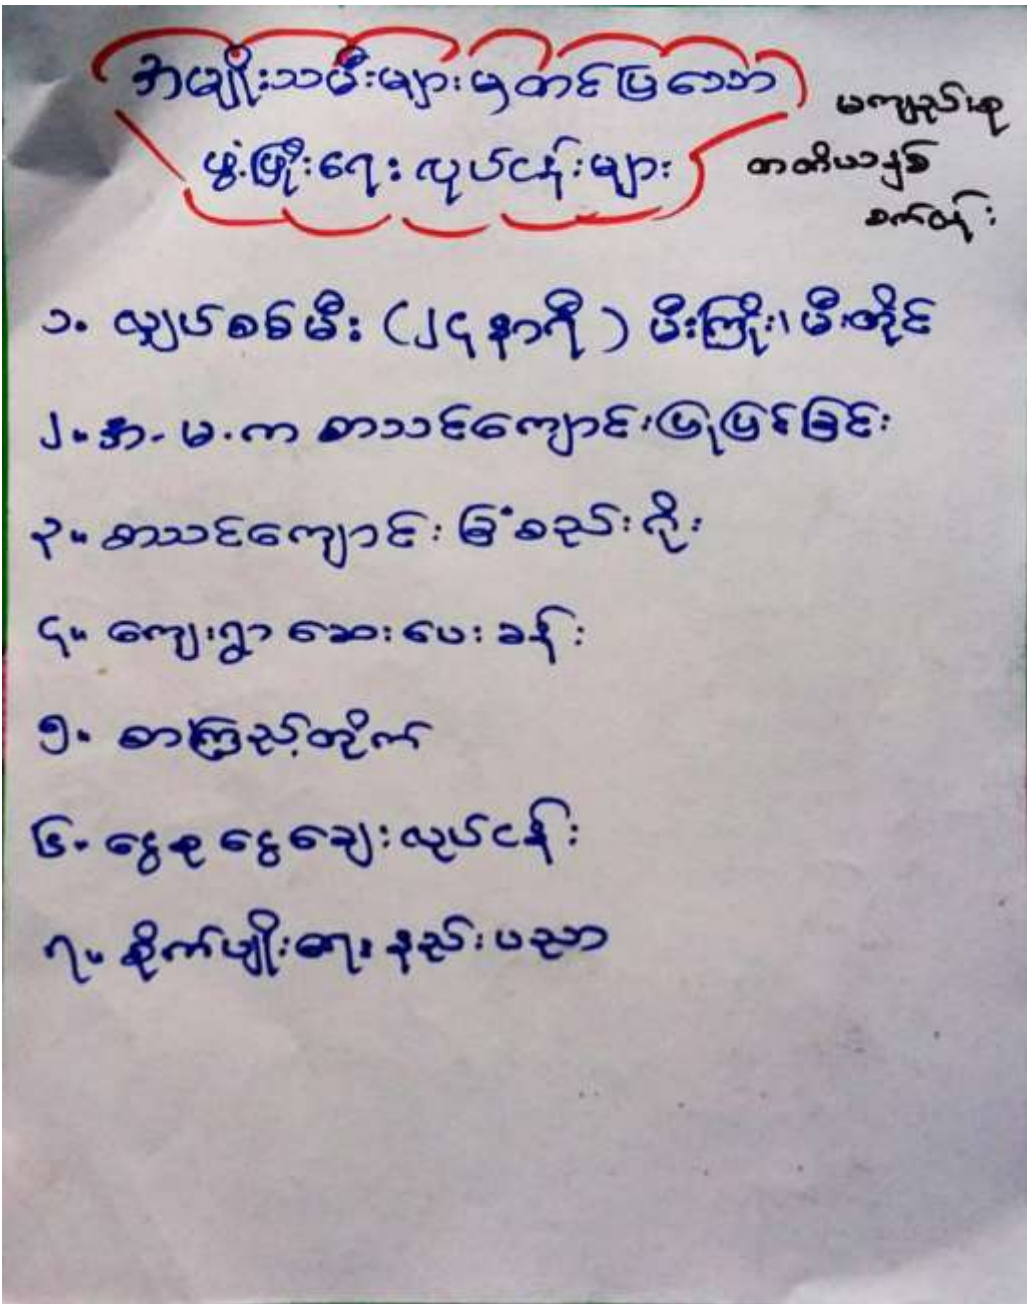 အမျိုးသမီးများမှတင်ပြသော
ဖွံ့ဖြိုးရေးလုပ်ငန်းများ
မကျည်းစု
တတိယနှစ်
စက်တန်း
၁။ လျှပ်စစ်မီး (၂၄ နာရီ) မီးကြိုး၊ မီးတိုင်
၂။ အ.မ.က စာသင်ကျောင်းပြုပြင်ခြင်း
၃။ စာသင်ကျောင်း ခြံစည်းရိုး
၄။ ကျေးရွာ ဆေးပေးခန်း
၅။ စာကြည့်တိုက်
၆။ ငွေစု ငွေချေးလုပ်ငန်း
၇။ စိုက်ပျိုးရေး နည်းပညာ